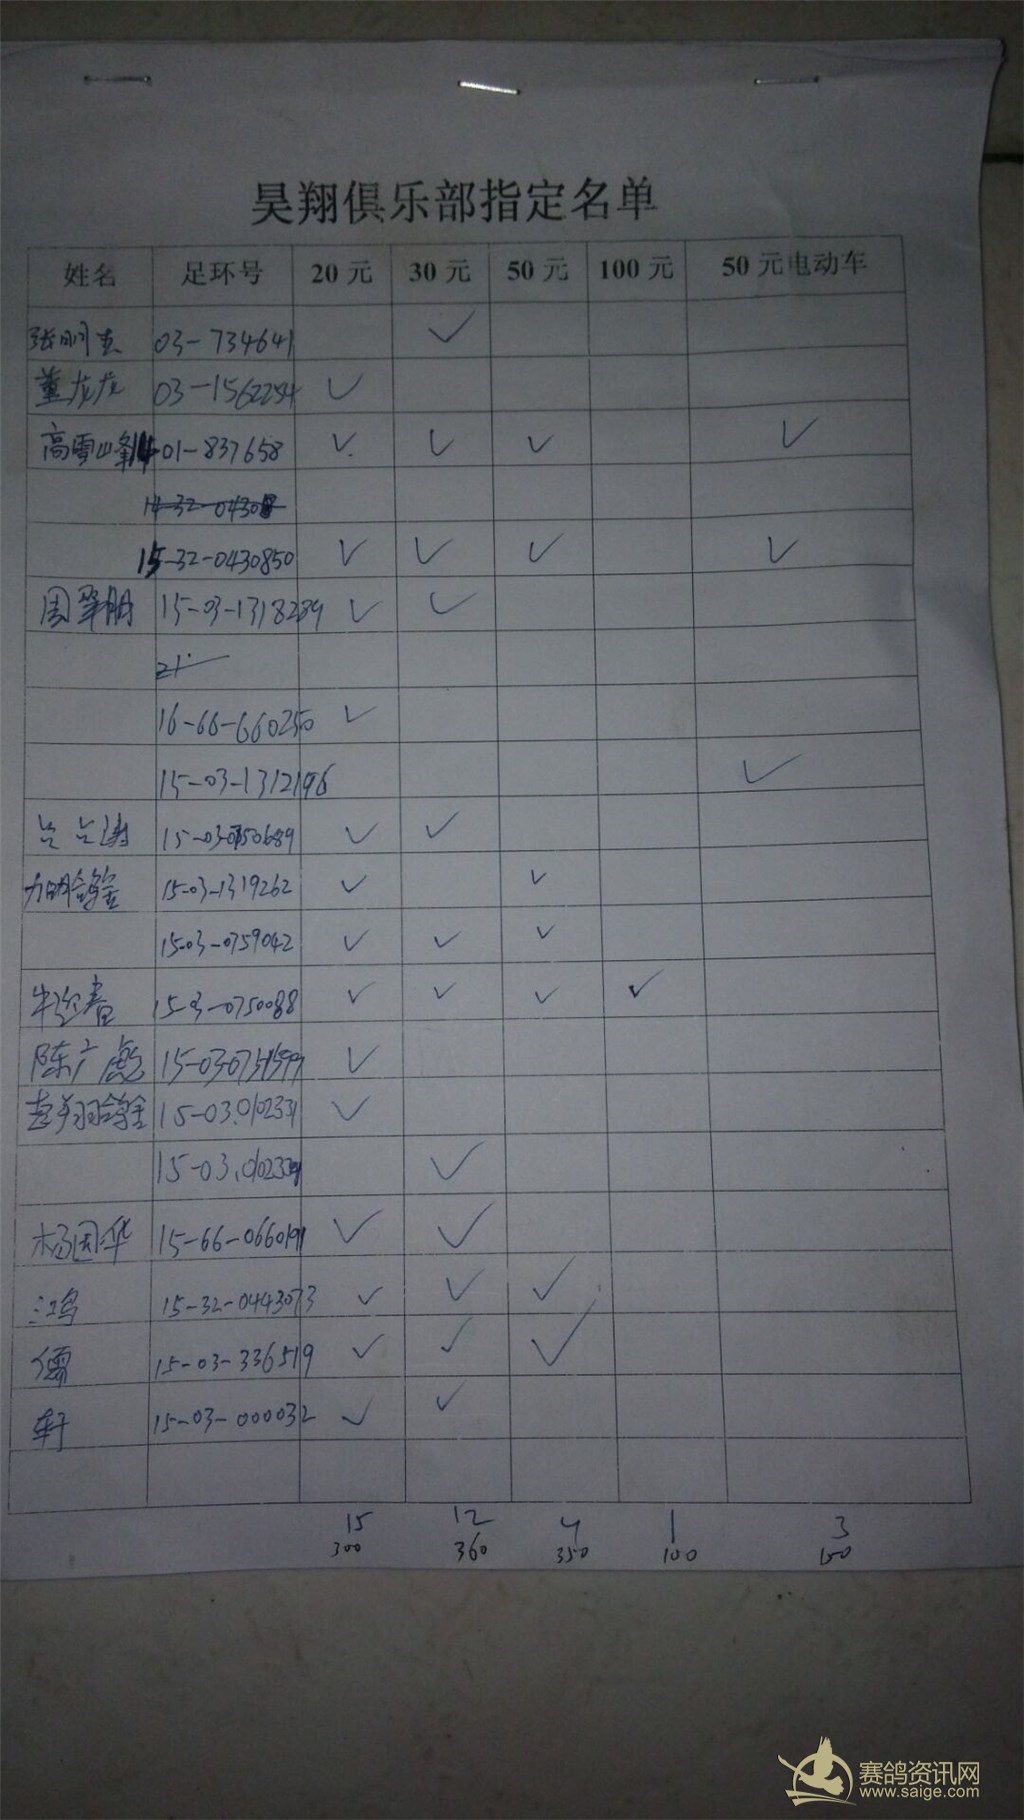 昊翔俱乐部指定名单
姓名 足环号 20元 30元 50元 100元 50元电动车
张明 03-734641 ✓
董龙龙 03-1562254 ✓
高雪峰 14-01-837658 ✓ ✓ ✓ ✓
14-32-04308
15-32-0430850 ✓ ✓ ✓ ✓
周翠朋 15-03-1318289 ✓ ✓
21
16-66-660250 ✓
15-03-1312196 ✓
15-03-0750689 ✓ ✓
加明鸽舍 15-03-1319262 ✓ ✓
15-03-0759042 ✓ ✓ ✓
牛迎春 15-03-0750088 ✓ ✓ ✓ ✓
陈广彪 ✓
翔鸽舍 15-03.0102331 ✓
✓
杨国华 15-66-0660191 ✓ ✓
鸿 15-32-0443073 ✓ ✓ ✓
儒 15-03-336519 ✓ ✓ ✓
轩 15-03-000032 ✓ ✓
15 12 1 3
300 360 350 100 150
赛鸽资讯网
www.saige.com